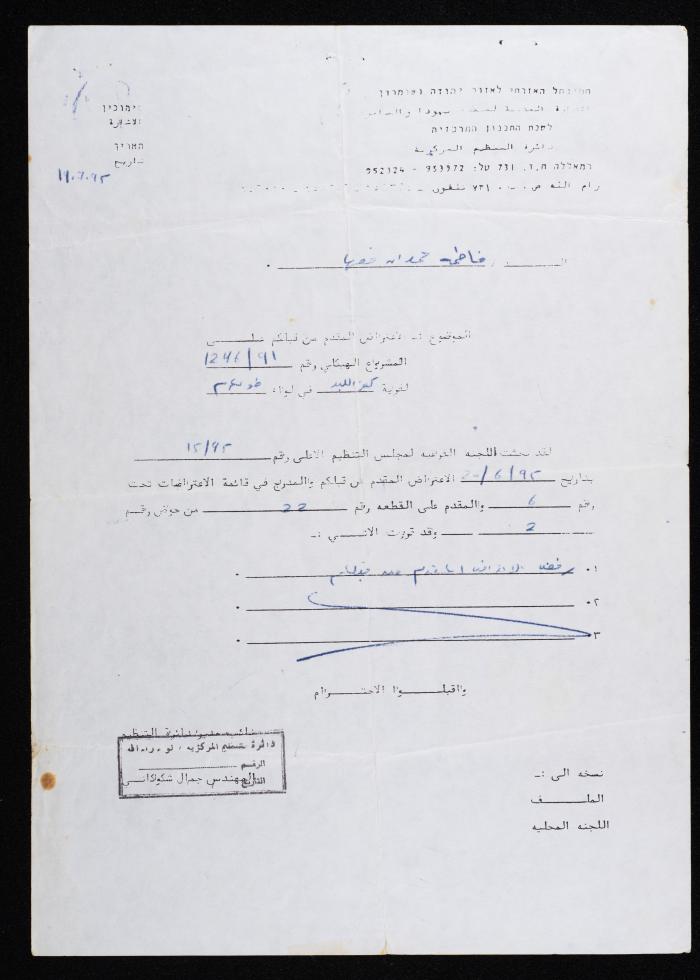 המינהל האזרחי לאזור יהודה ושומרון
לשכת התכנון המרכזית
دائرة التنظيم المركزية
רמאללה ת.ד. 731 טל: 953972 - 952324
رام الله ص.ب. ٧٣١ تلفون
סימוכין
الاشارة
תאריך
تاريخ
١٩.٧.٩٥
فاطمه حمدان
الموضوع :- الاعتراض المقدم من قبلكم على
المشروع الهيكلي رقم 1246/91
لقرية كفر اللبد في لواء طولكرم
لقد بحثت اللجنه الفرعيه لمجلس التنظيم الاعلى رقم ١٥/٩٥
بتاريخ /6/٩٥ الاعتراض المقدم من قبلكم والمدرج في قائمة الاعتراضات تحت
رقم 6 والمقدم على القطعه رقم 22 من حوض رقم
2 وقد قررت الاتي :-
١. رفض الاعتراض المقدم من قبلكم .
٢.
٣.
واقبلوا الاحترام
دائرة التنظيم المركزية
الرقم
التاريخ
المهندس جمال
نسخه الى :-
الملف
اللجنه المحليه